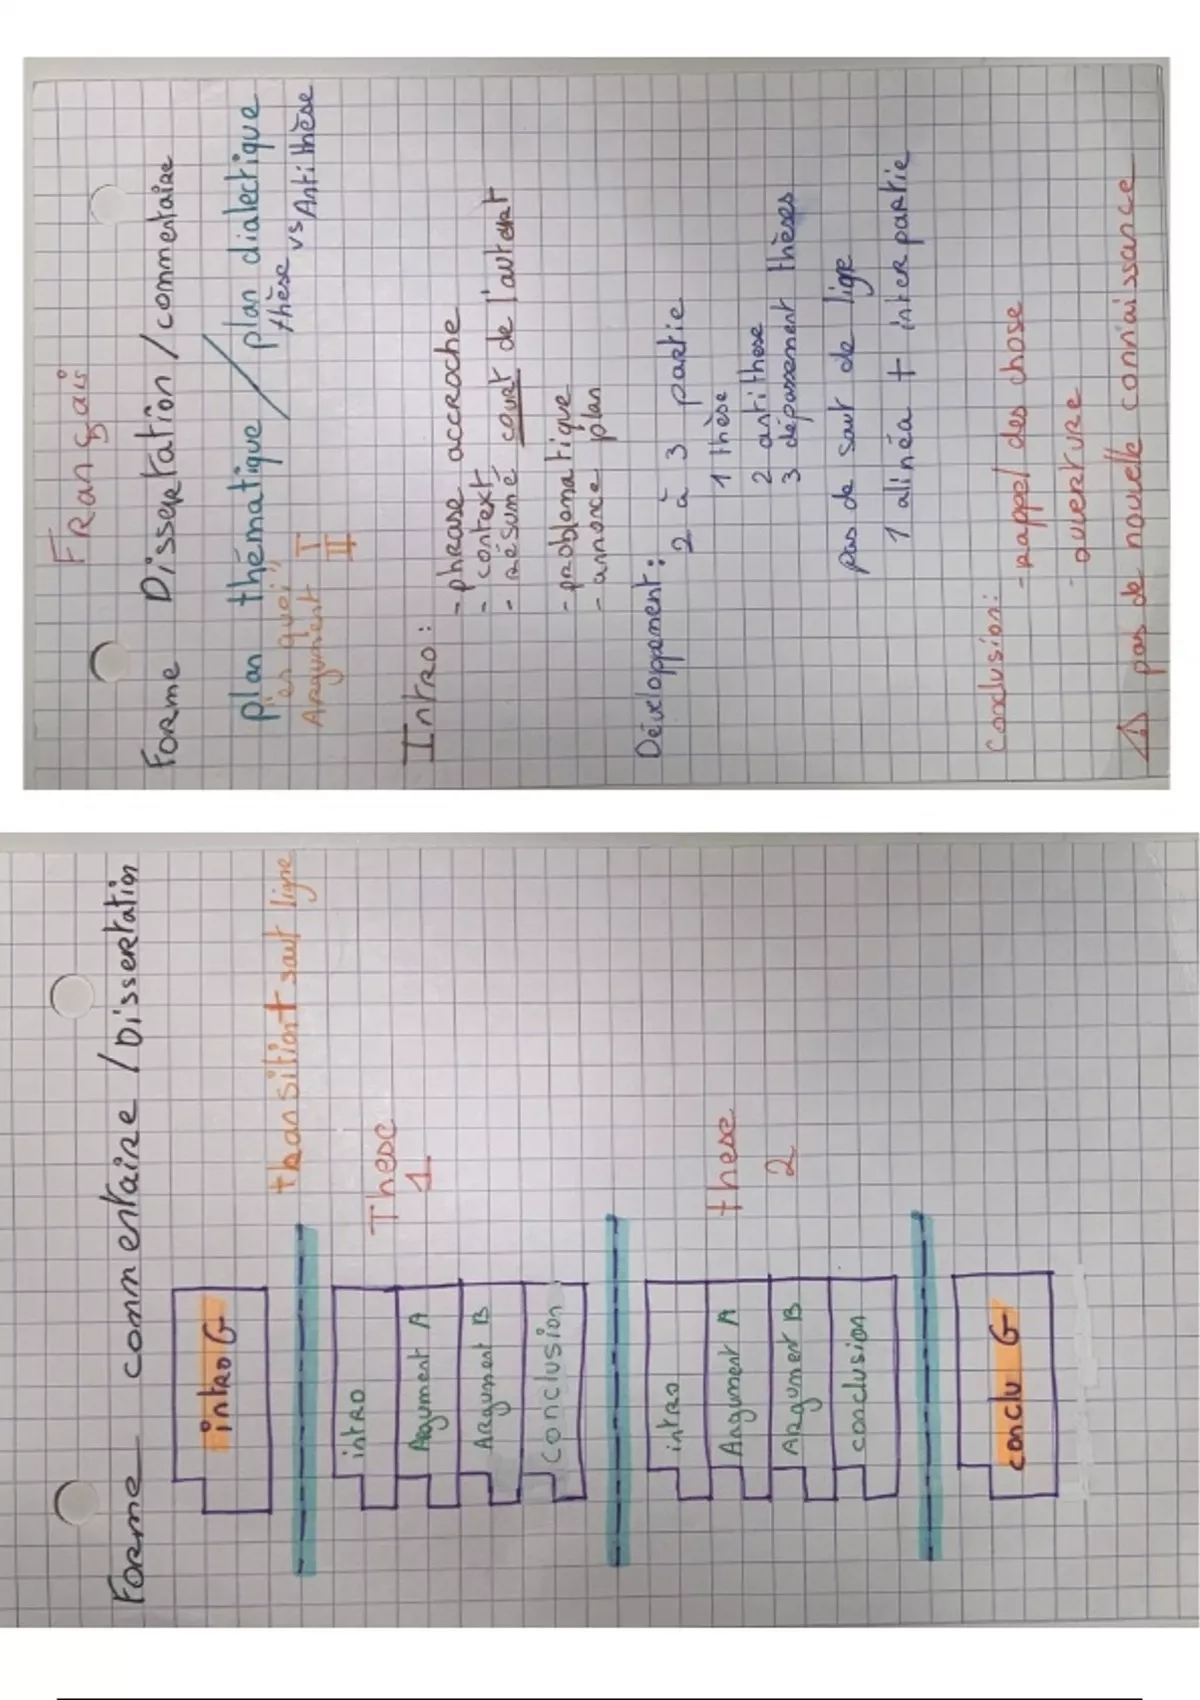 Français
Forme Dissertation / commentaire
plan thématique / plan dialectique
"en quoi" thèse vs Antithèse
Argument I
II
Intro :
- phrase accroche
- context
- résumé court de l'autert
- problematique
- annonce plan
Développement :
2 à 3 partie
1 thèse
2 antithese
3 dépassement thèses
pas de saut de ligne
1 alinéa + inter partie
Conclusion :
- rappel des chose
- ouverture
⚠ pas de nouvelle connaissance
Forme commentaire / Dissertation
intro G
transition + saut ligne
These
1
intro
Argument A
Argument B
Conclusion
these
2
intro
Argument A
Argument B
conclusion
conclu G